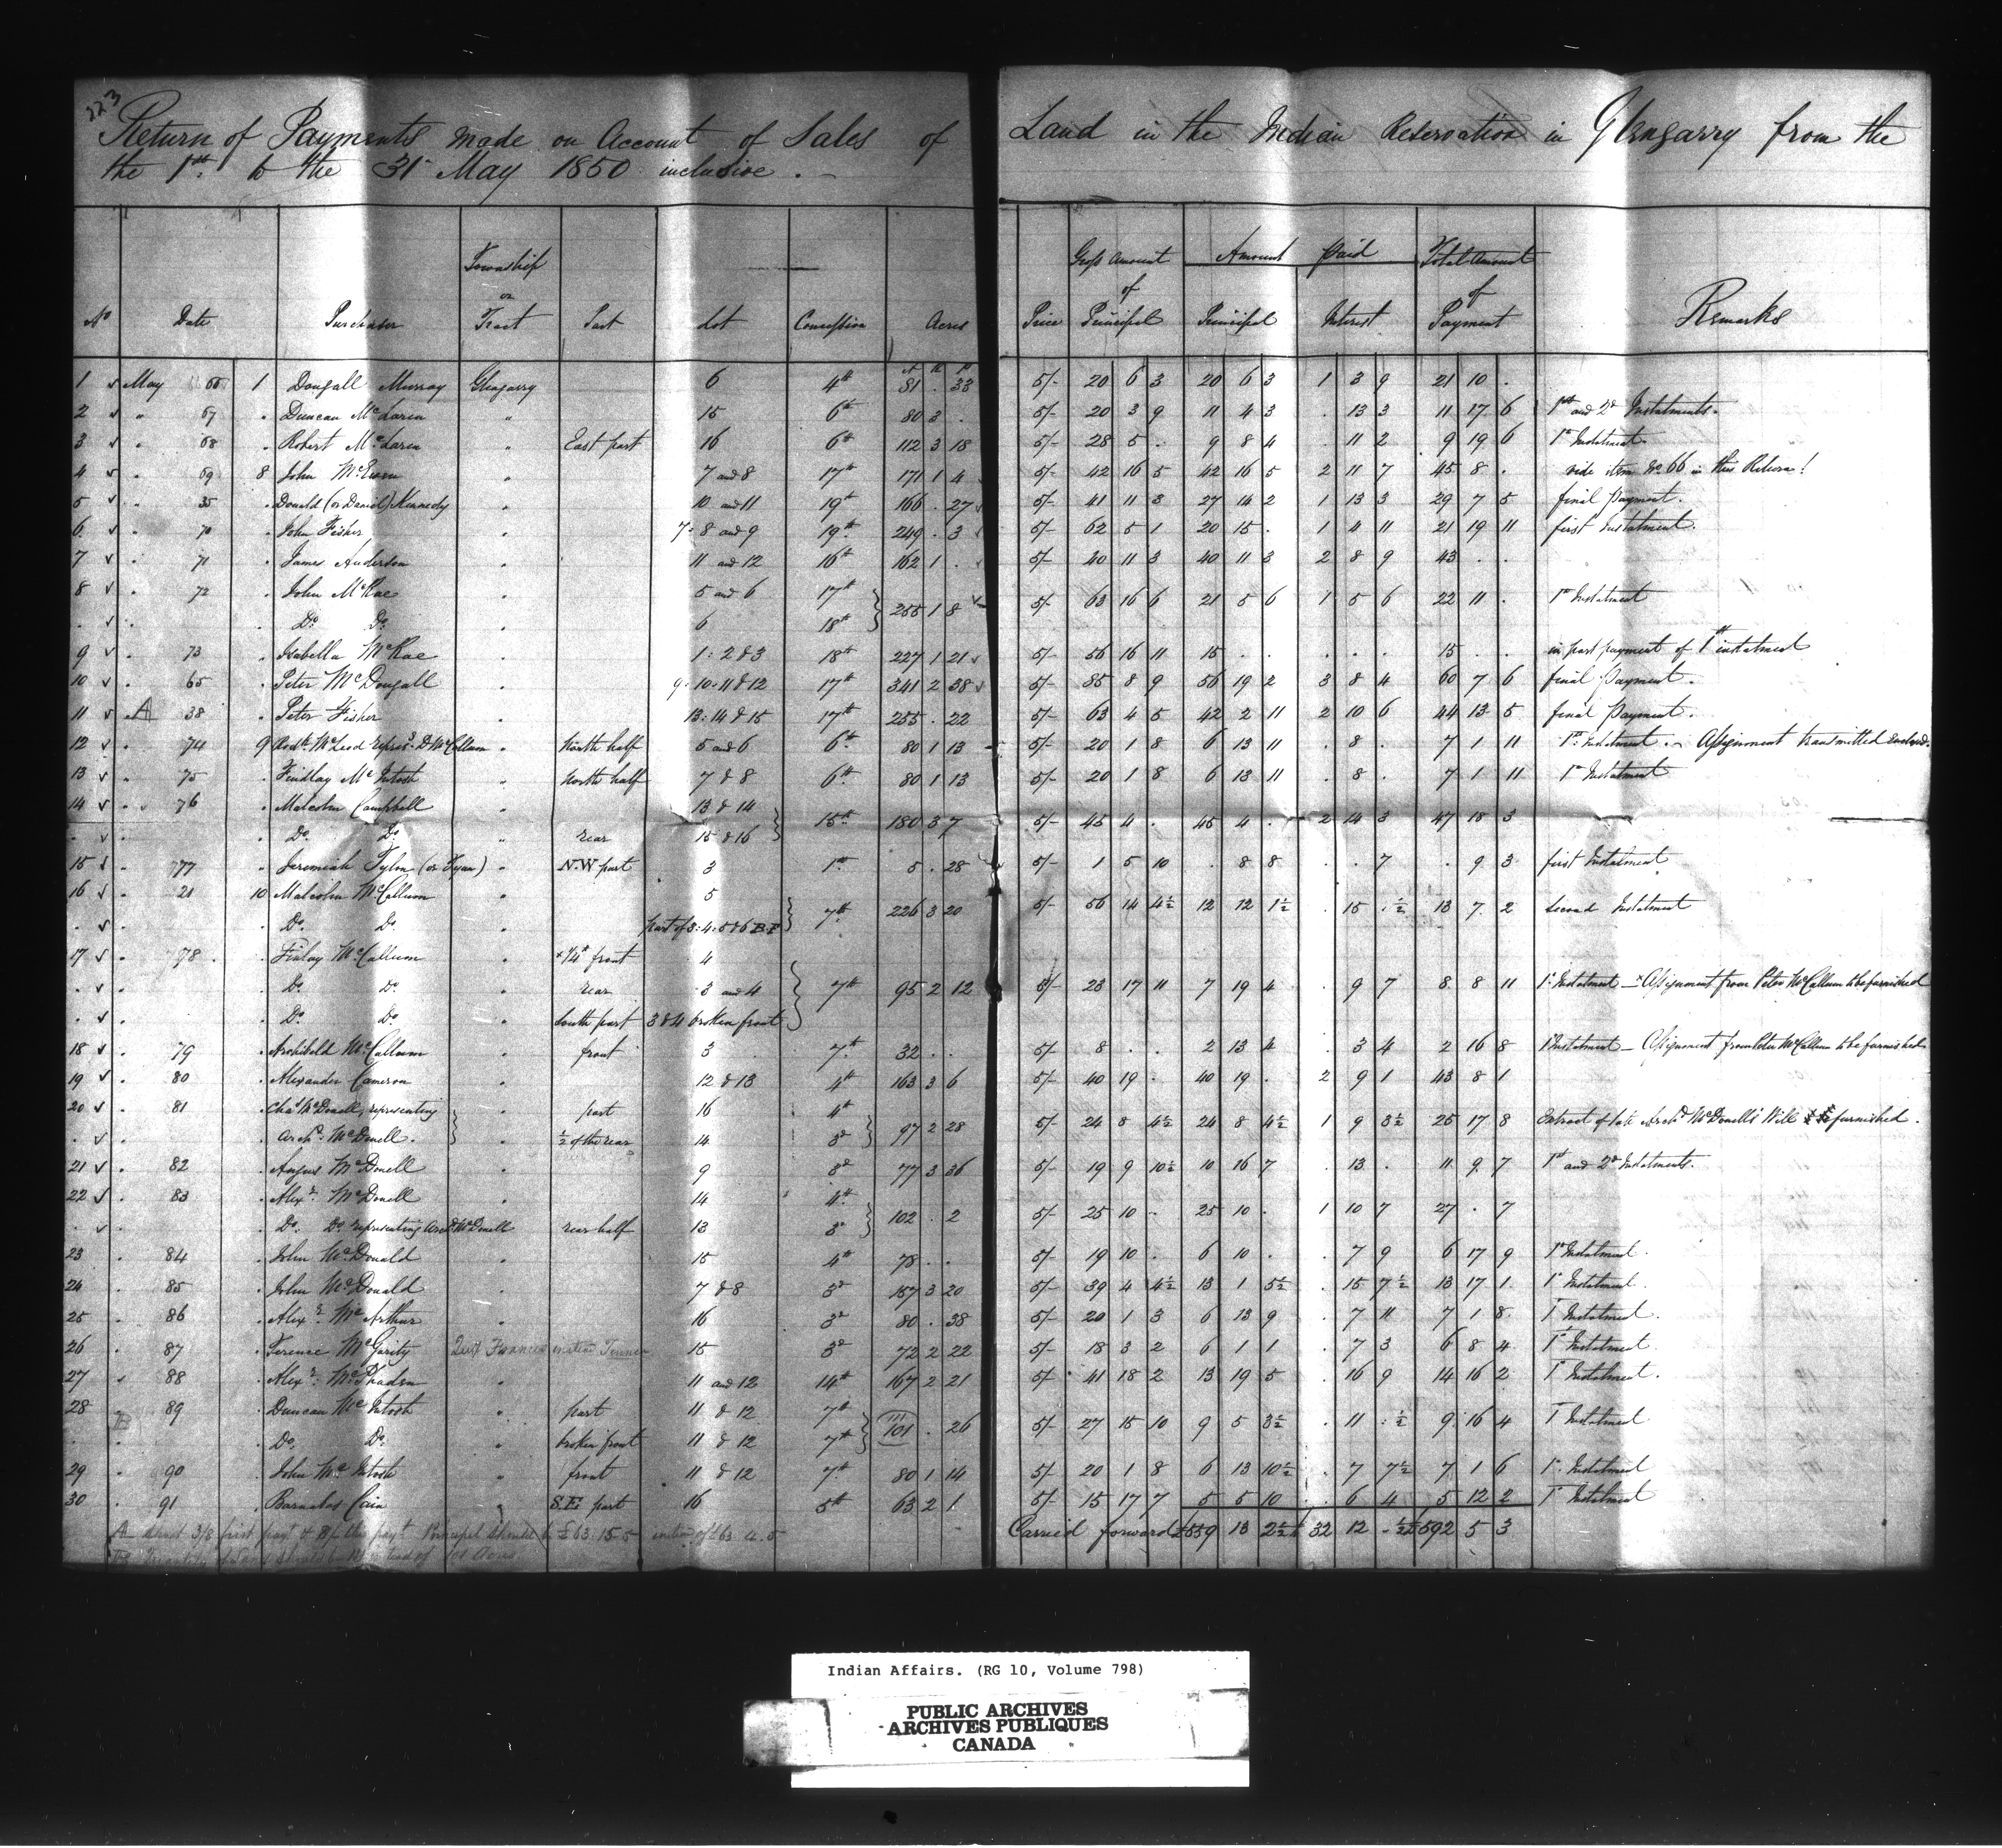 223
Return of Payments made on Account of Sales of Land in the Indian Reservation in Glengarry from the
the 1st to the 31st May 1850 inclusive. —
No Date Purchaser Township or Tract Part Lot Concession Acres Price Gross Amount of Principal Amount Paid Principal Interest Total Amount of Payment Remarks
A R P
1 v May 66 1 Dougall Murray Glengarry 6 4th 81 . 33 5/- 20 6 3 20 6 3 1 3 9 21 10 .
2 v " 67 . Duncan McLaren " 15 6th 80 3 . 5/- 20 3 9 11 4 3 . 13 3 11 17 6 1st and 2d Instalments.
3 v " 68 . Robert McLaren " East part 16 6th 112 3 18 5/- 28 5 . 9 8 4 . 11 2 9 19 6 1st Instalment
4 v " 69 8 John McEwen " 7 and 8 17th 171 1 4 5/- 42 16 5 42 16 5 2 11 7 45 8 . vide item No 66 in this Return!
5 v " 35 . Donald (or Daniel) Kennedy . 10 and 11 19th 166 . 27 5/- 41 11 8 27 14 2 1 13 3 29 7 5 final Payment.
6 v . 70 . John Fisher . 7. 8 and 9 19th 249 . 3 5/- 62 5 1 20 15 . 1 4 11 21 19 11 first Instalment.
7 v . 71 . James Anderson . 11 and 12 16th 162 1 . 5/- 40 11 3 40 11 3 2 8 9 43 . .
8 v . 72 . John McRae . 5 and 6 17th } 255 1 8 5/- 63 16 6 21 5 6 1 5 6 22 11 . 1st Instalment
. v . . Do Do . 6 18th }
9 v . 73 . Isabella McRae . 1: 2 & 3 18th 227 1 21 5/- 56 16 11 15 . . . . . 15 . . in part payment of 1st instalment
10 v . 65 . Peter McDougall . 9. 10. 11 & 12 17th 341 2 38 5/- 85 8 9 56 19 2 3 8 4 60 7 6 final Payment.
11 v . A 38 . Peter Fisher . 13: 14 & 15 17th 255 . 22 5/- 63 4 5 42 2 11 2 10 6 44 13 5 final Payment.
12 v . 74 9 Rodk McLeod represg D. McCallum . North half 5 and 6 6th 80 1 13 5/- 20 1 8 6 13 11 . 8 . 7 1 11 1st Instalment - Assignment transmitted
13 v . 75 . Findlay McIntosh . North half 7 & 8 6th 80 1 13 5/- 20 1 8 6 13 11 . 8 . 7 1 11 1st Instalment
14 v . 76 . Malcolm Campbell . 13 & 14 } 15th 180 3 7 5/- 45 4 . 45 4 . 2 14 3 47 18 3
. v . . Do Do . rear 15 & 16 }
15 v . 77 . Jeremiah Tylon (or Tyan) . N.W part 3 1st 5 . 28 5/- 1 5 10 . 8 8 . . 7 . 9 3 first Instalment
16 v . 21 10 Malcolm McCallum . 5 } 7th 226 3 20 5/- 56 14 4½ 12 12 1½ . 15 . ½ 13 7 2 Second Instalment
. v . . Do Do . Part of 3: 4: 5 & 6 B.F }
17 v . 78 . Finlay McCallum . x ¼th front 4
. v . . Do Do . rear 3 and 4 } 7th 95 2 12 5/- 23 17 11 7 19 4 . 9 7 8 8 11 1st Instalment - x Assignment from Peter McCallum to be furnished
. v . . Do Do . South part 3 & 4 broken front }
18 v . 79 . Archibald McCallum . front 3 7th 32 . . 5/- 8 . . 2 13 4 . 3 4 2 16 8 1st Instalment - Assignment from Peter McCallum to be furnished
19 v . 80 . Alexander Cameron . 12 & 13 4th 163 3 6 5/- 40 19 . 40 19 . 2 9 1 43 8 1
20 v . 81 . Chas McDonell, representing } . part 16 4th } 97 2 28 5/- 24 8 4½ 24 8 4½ 1 9 3½ 25 17 8 Extract of late Archd McDonell's Will furnished.
. v . Archd McDonell. } ½ of the rear 14 3d }
21 v . 82 . Angus McDonell . 9 3d 77 3 36 5/- 19 9 10½ 10 16 7 . 13 . 11 9 7 1st and 2d Instalments.
22 v . 83 . Alexr McDonell . 14 4th } 102 . 2 5/- 25 10 . 25 10 . 1 10 7 27 . 7
. v . . Do Do representing Archd McDonell rear half 13 3d }
23 . 84 . John McDonald . 15 4th 78 . . 5/- 19 10 . 6 10 . . 7 9 6 17 9 1st Instalment
24 . 85 . John McDonald . 7 & 8 3d 157 3 20 5/- 39 4 4½ 13 1 5½ . 15 7½ 13 17 1 1st Instalment
25 . 86 . Alexr McArthur . 16 3d 80 . 38 5/- 20 1 3 6 13 9 . 7 11 7 1 8 1st Instalment
26 . 87 . Terence McGarity 15 3d 72 2 22 5/- 18 3 2 6 1 1 . 7 3 6 8 4 1st Instalment
27 . 88 . Alexr McPhaden " 11 and 12 14th 167 2 21 5/- 41 18 2 13 19 5 . 16 9 14 16 2 1st Instalment.
28 . B 89 . Duncan McIntosh " part 11 & 12 7th } 111 101 . 26 5/- 27 15 10 9 5 3½ . 11 . ½ 9 16 4 1st Instalment
. . . Do Do " broken front 11 & 12 7th }
29 . 90 . John McIntosh " front 11 & 12 7th 80 1 14 5/- 20 1 8 6 13 10½ . 7 7½ 7 1 6 1st Instalment
30 . 91 . Barnabas Cain " S.E. part 16 5th 63 2 1 5/- 15 17 7 5 5 10 . 6 4 5 12 2 1st Instalment
Carried forward £559 13 2½ 32 12 . ½ £592 5 3
A 3/8 first payt of this payt Principal should be £63.15.5 instead of £63.4.5
B instead of 101 Acres
Indian Affairs. (RG 10, Volume 798)
PUBLIC ARCHIVES
ARCHIVES PUBLIQUES
CANADA